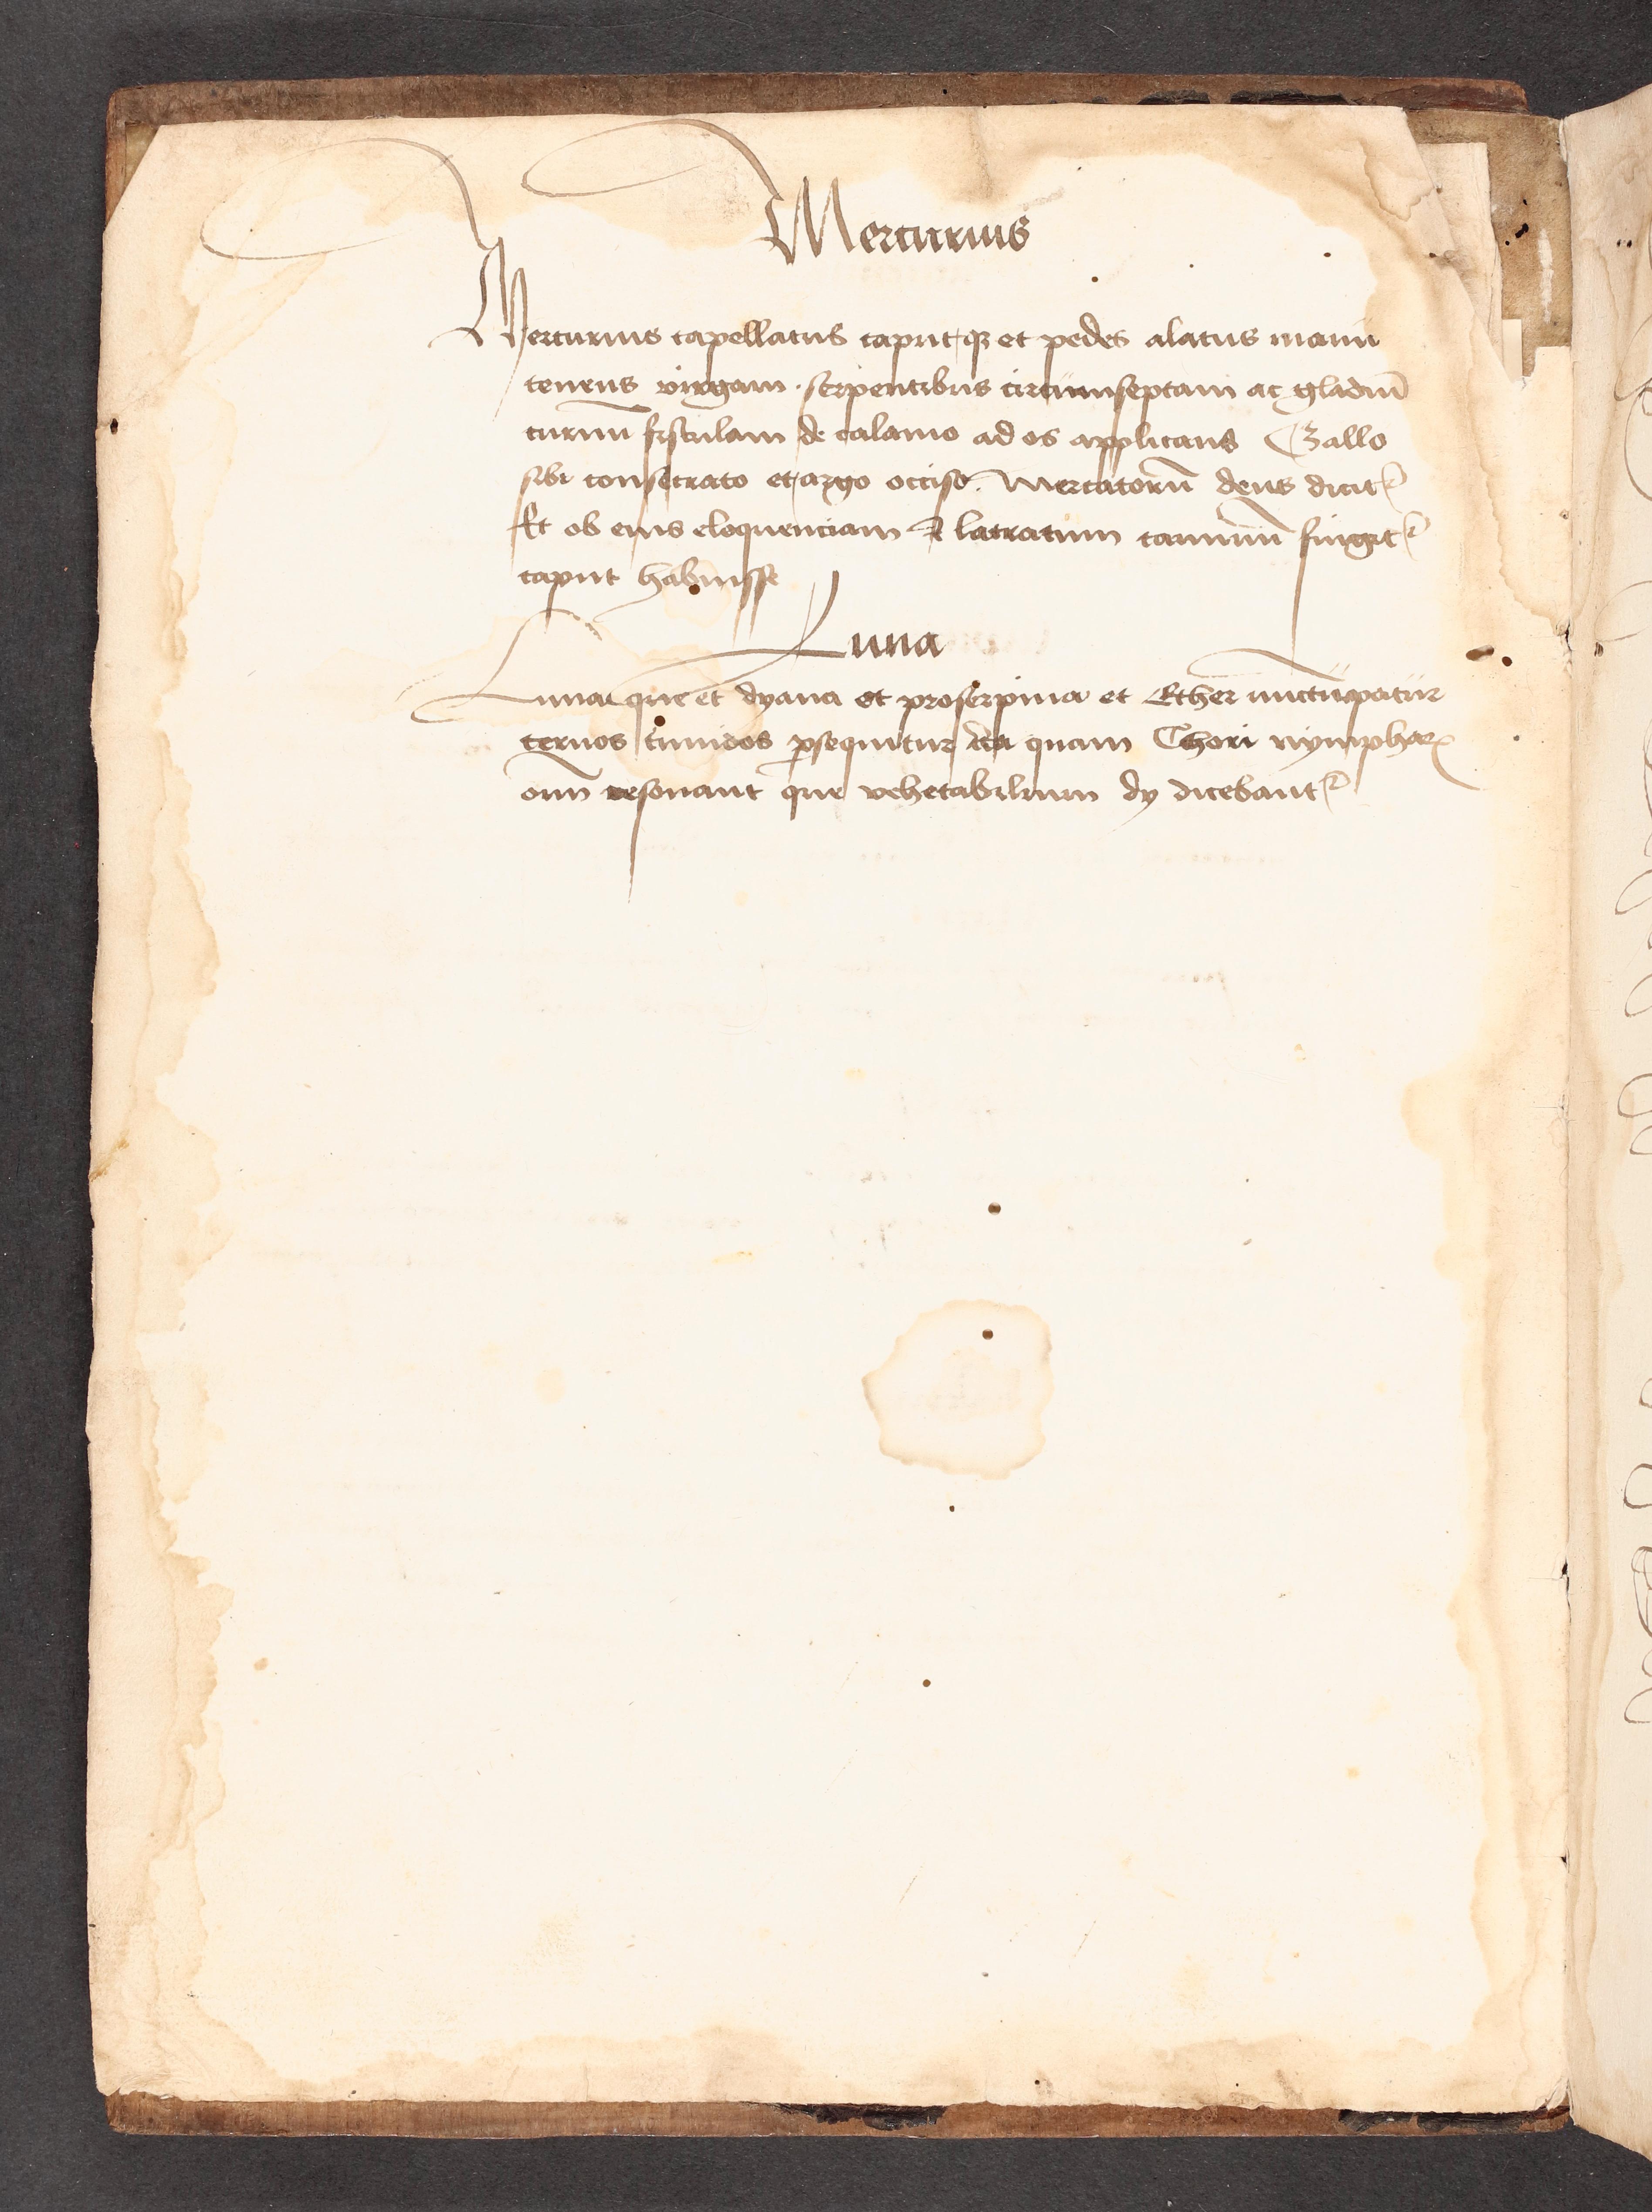 Mercurius
Mercurius capellatus caputqȝ et pedes alatus manu
tenens virgam serpentibus circumseptam ac gladiū
curuū fistulam de calamo ad os applicans Gallo
sibi consecrato et argo occiso. Mercatorū deus dicit᷑
Et ob eius eloquenciam latratum caninū fingit᷑
caput habuisse
Luna
Luna que et dyana et proserpina et Ether nuncupatur
ceruos timidos ꝑsequitur quam Chori nymphaꝝ
que vehetabilium dy dicebant᷑